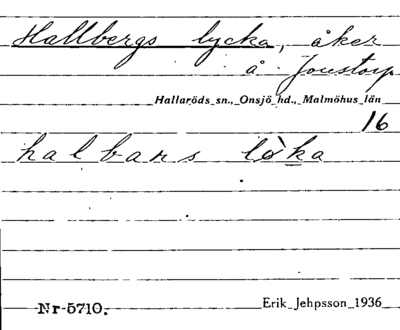 Hallbergs lycka, åker
å Joustorp
Hallaröds sn., Onsjö hd., Malmöhus län
16
halbars lo̊̀ka
Nr 5710.
Erik Jehpsson 1936